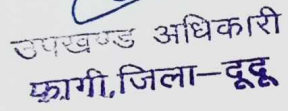 उपखण्ड अधिकारी
फागी,जिला–दूदू